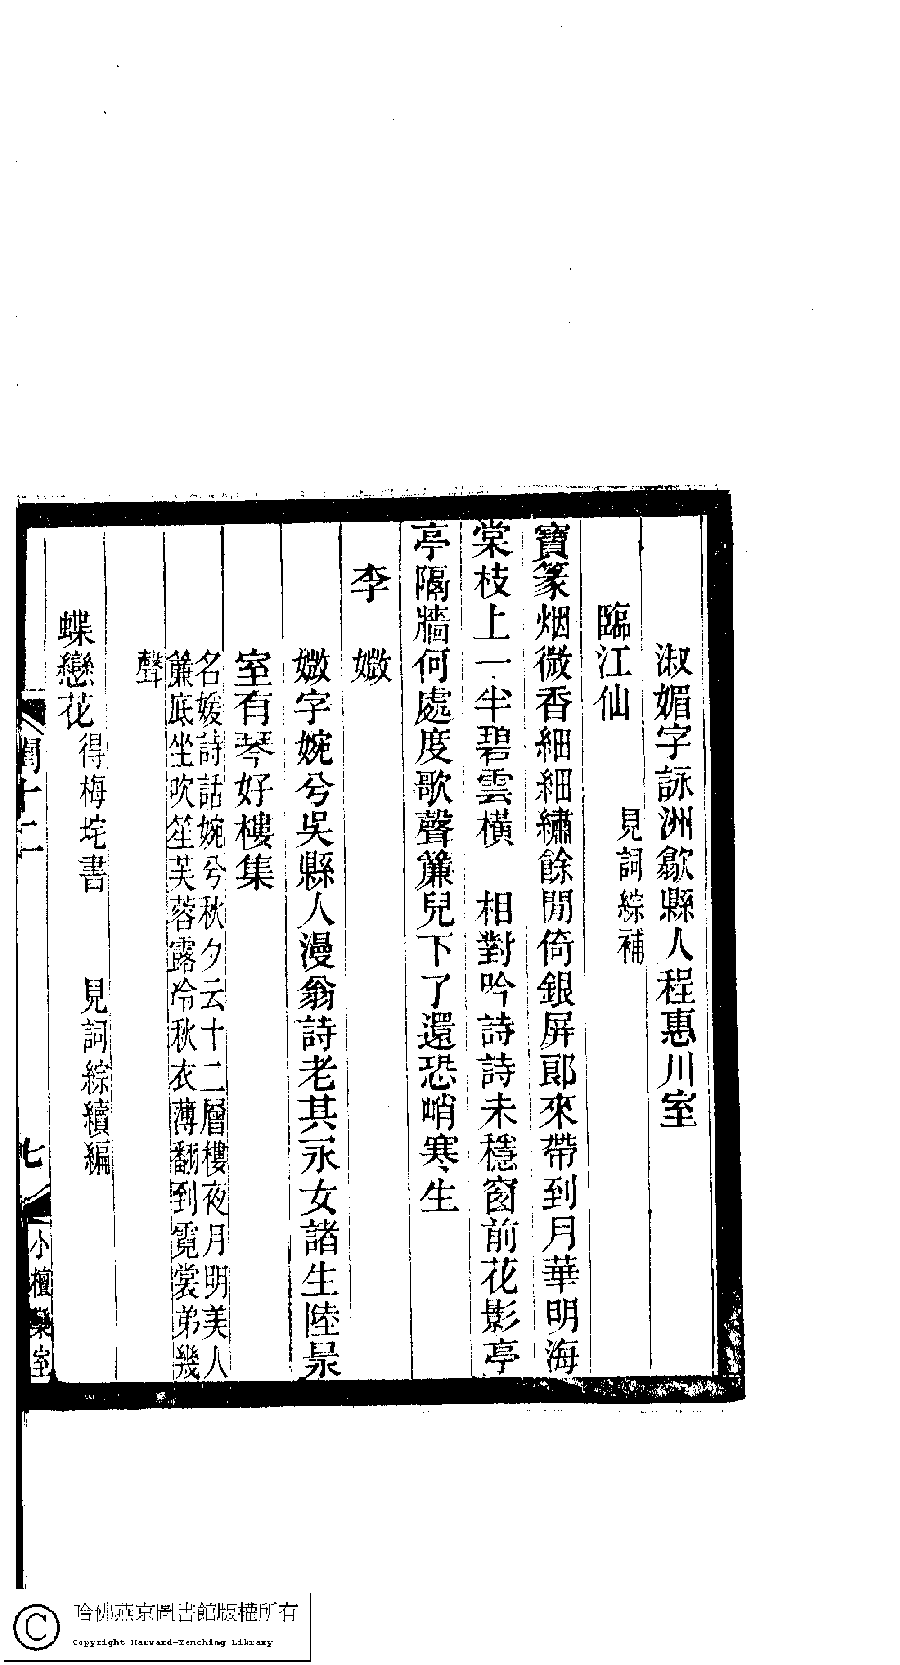 淑媚字詠洲歙縣人程惠川室
臨江仙　見詞綜補
寶篆烟微香細細繡餘閒倚銀屏郎來帶到月華明海
棠枝上一半碧雲橫　相對吟詩詩未穩窗前花影亭
亭隔牆何處度歌聲簾兒下了還恐峭寒生
李　媺
媺字婉兮吳縣人漫翁詩老其永女諸生陸㫤
室有琴好樓集
名媛詩話婉兮秋夕云十二層樓夜月明美人
簾底坐吹笙芙蓉露冷秋衣薄翻到霓裳弟幾
聲
蝶戀花　得梅垞書　見詞綜續編
閨十二
七
小檀欒室
哈佛燕京圖書館版權所有
Copyright Harvard-Yenching Library